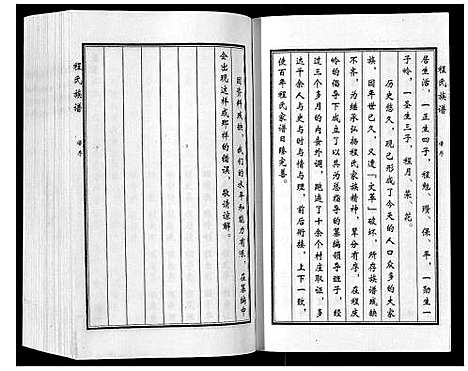 程氏族谱
谱序
居生活，一正生四子，程勉、瓒、保、年，一勤生一
子岭，一圣生三子，程月、荣、花。
历史悠久，现已形成了今天的人口众多的大家
族，因年世已久，又遭“文革”破坏，所存族谱残缺
不齐，为继承弘扬程氏家族精神，辈分有序，在程庆
岭的倡导下成立了以其为总指导的纂编领导班子，经
过三个多月的内查外调，跑遍了十余个村庄取证，
达千余人与史与时与情与理，前后衔接，上下一致，
使百年程氏家谱日臻完善。
因资料残缺，我们的水平和能力有限，在纂编中
会出现这样或那样的错误，敬请谅解。
程氏族谱
谱序